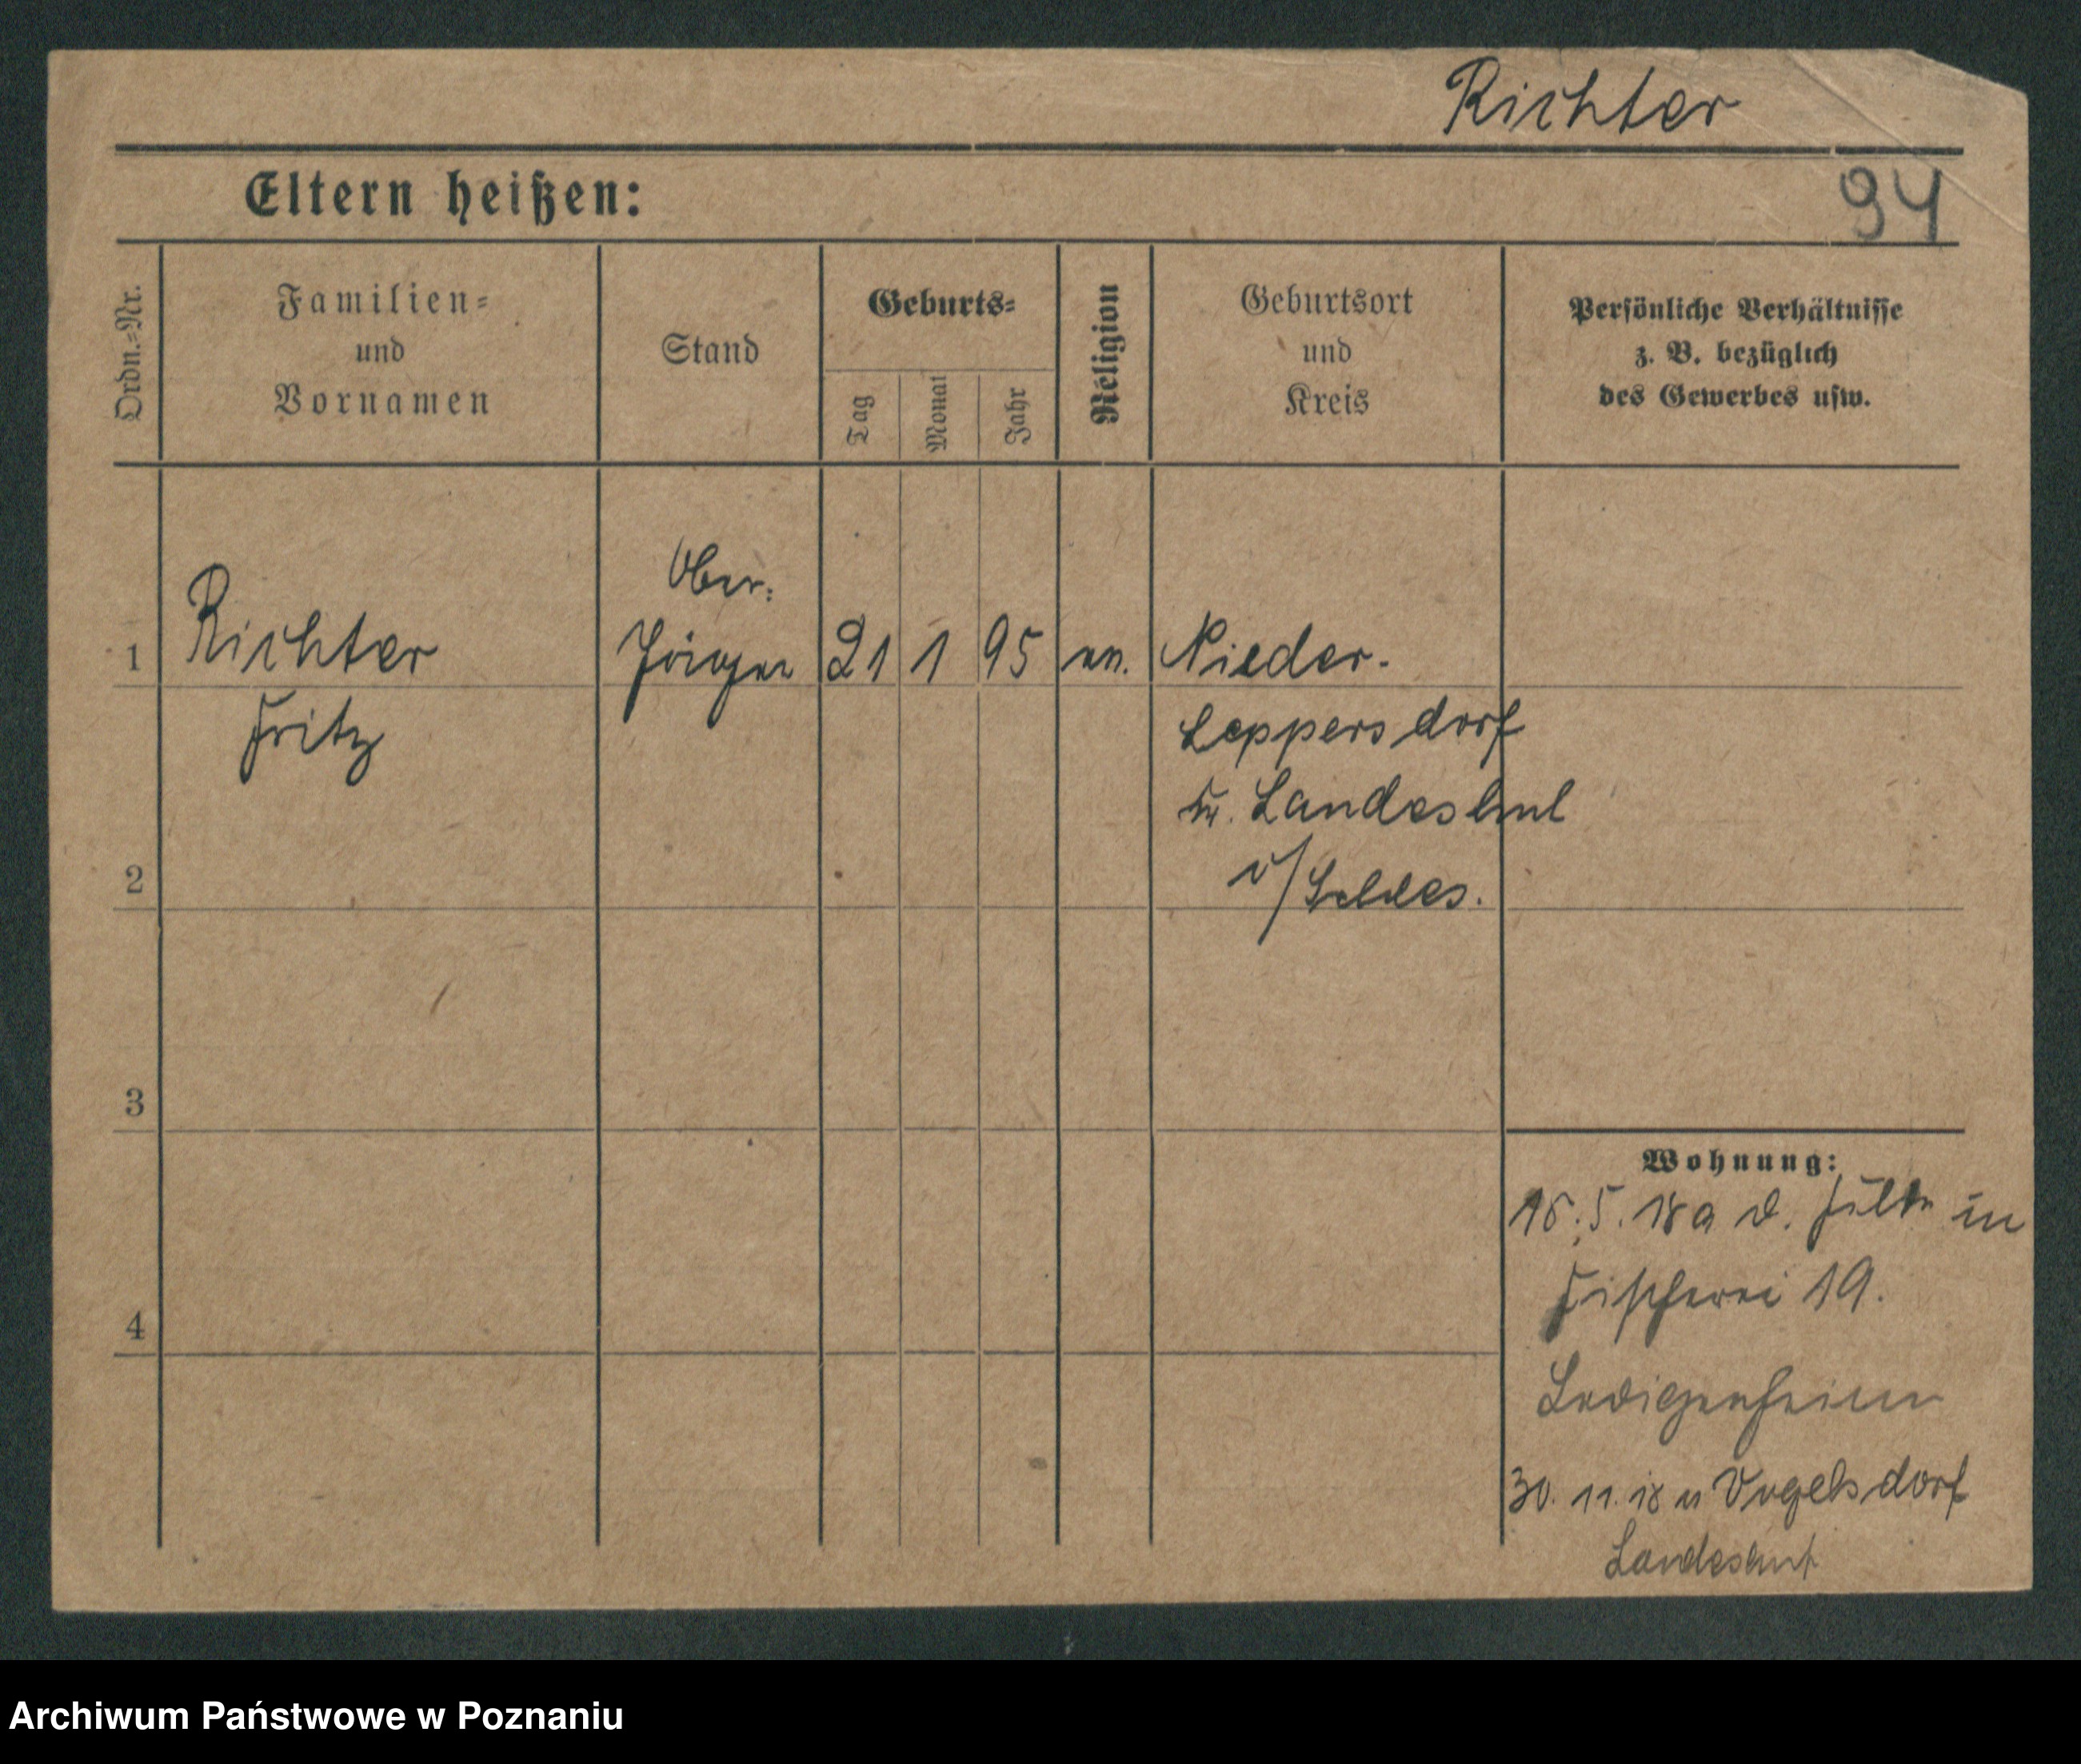 Richter
Eltern heißen:
94
Ordn.=Nr.
Familien=
und
Vornamen
Stand
Geburts=
Tag
Monat
Jahr
Religion
Geburtsort
und
Kreis
Persönliche Verhältnisse
z. B. bezüglich
des Gewerbes usw.
1
Richter
Fritz
Ober=
Jäger
21 1 95
ev.
Nieder-
Leppersdorf
Kr. Landeshut
i/Schles.
2
3
4
Wohnung:
18.5.18 a d. in
Fischerei 19.
Ledigenheim
30. 11. 18 n Vogelsdorf
Landeshut
Archiwum Państwowe w Poznaniu